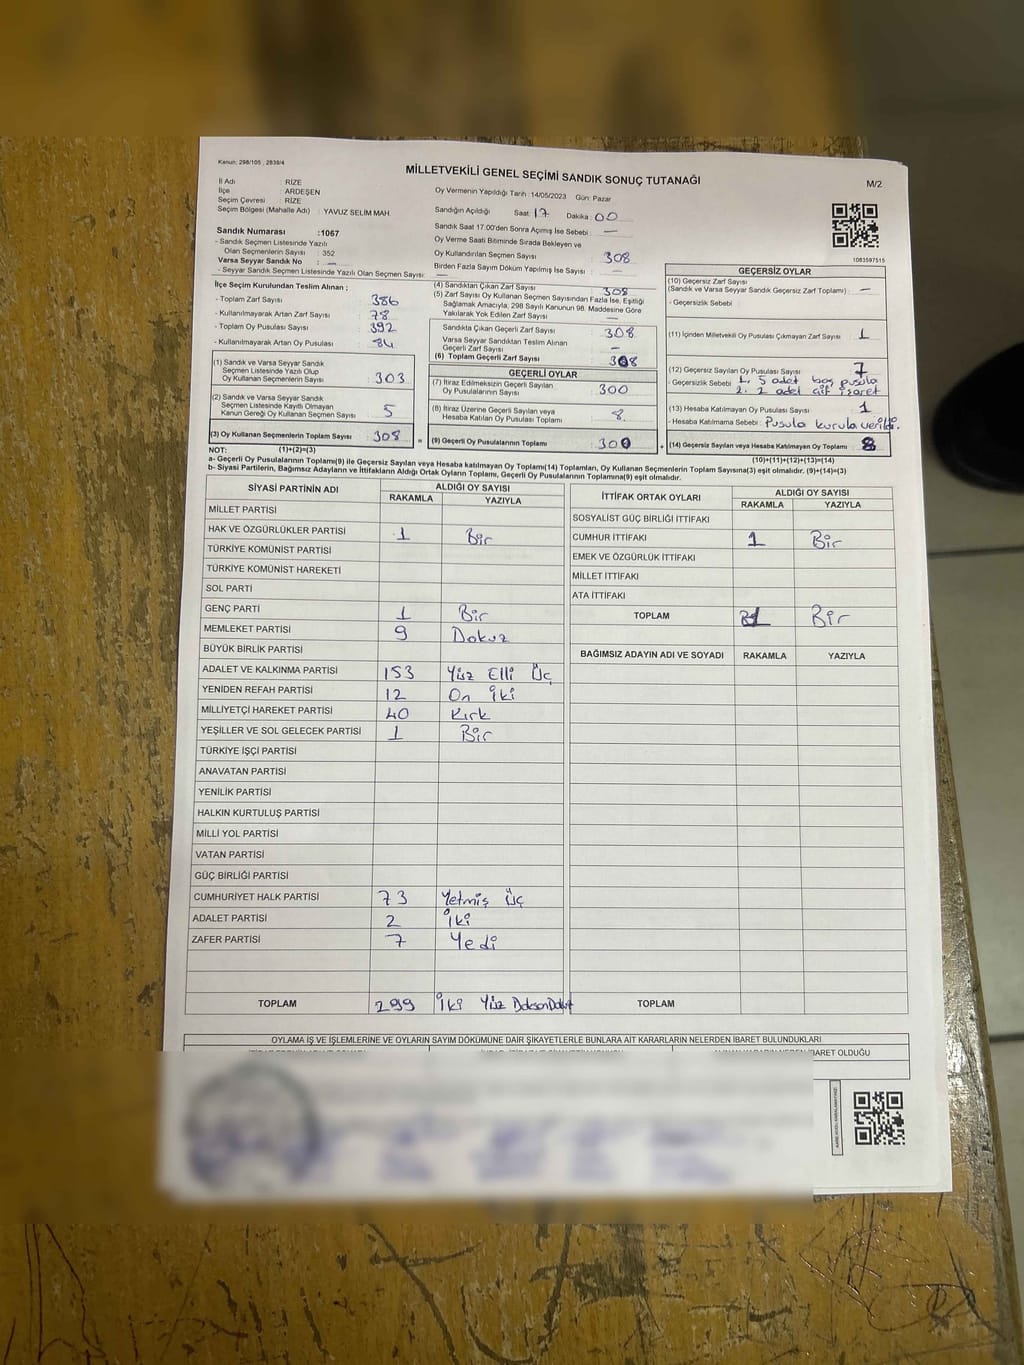 Kanun: 298/105 , 2839/4
MİLLETVEKİLİ GENEL SEÇİMİ SANDIK SONUÇ TUTANAĞI
M/2
İl Adı : RİZE
İlçe : ARDEŞEN
Seçim Çevresi : RİZE
Seçim Bölgesi (Mahalle Adı) : YAVUZ SELİM MAH.
Oy Vermenin Yapıldığı Tarih : 14/05/2023 Gün: Pazar
Sandığın Açıldığı Saat: 17 Dakika : 00
Sandık Numarası :1067
- Sandık Seçmen Listesinde Yazılı
Olan Seçmenlerin Sayısı : 352
Varsa Seyyar Sandık No : —
- Seyyar Sandık Seçmen Listesinde Yazılı Olan Seçmen Sayısı: —
Sandık Saat 17.00'den Sonra Açımış İse Sebebi : —
Oy Verme Saati Bitiminde Sırada Bekleyen ve
Oy Kullandırılan Seçmen Sayısı : 308
Birden Fazla Sayım Döküm Yapılmış İse Sayısı : —
1083597515
İlçe Seçim Kurulundan Teslim Alınan ;
- Toplam Zarf Sayısı : 386
- Kullanılmayarak Artan Zarf Sayısı : 78
- Toplam Oy Pusulası Sayısı : 392
- Kullanılmayarak Artan Oy Pusulası : 84
(1) Sandık ve Varsa Seyyar Sandık
Seçmen Listesinde Yazılı Olup
Oy Kullanan Seçmenlerin Sayısı : 303
(2) Sandık ve Varsa Seyyar Sandık
Seçmen Listesinde Kayıtlı Olmayan
Kanun Gereği Oy Kullanan Seçmen Sayısı : 5
(3) Oy Kullanan Seçmenlerin Toplam Sayısı : 308
(1)+(2)=(3)
(4) Sandıktan Çıkan Zarf Sayısı : 308
(5) Zarf Sayısı Oy Kullanan Seçmen Sayısından Fazla İse, Eşitliği
Sağlamak Amacıyla, 298 Sayılı Kanunun 98. Maddesine Göre
Yakılarak Yok Edilen Zarf Sayısı : —
Sandıkta Çıkan Geçerli Zarf Sayısı : 308
Varsa Seyyar Sandıktan Teslim Alınan
Geçerli Zarf Sayısı : —
(6) Toplam Geçerli Zarf Sayısı : 308
GEÇERLİ OYLAR
(7) İtiraz Edilmeksizin Geçerli Sayılan
Oy Pusulalarının Sayısı : 300
(8) İtiraz Üzerine Geçerli Sayılan veya
Hesaba Katılan Oy Pusulası Toplamı : 8
= (9) Geçerli Oy Pusulalarının Toplamı : 300
GEÇERSİZ OYLAR
(10) Geçersiz Zarf Sayısı
(Sandık ve Varsa Seyyar Sandık Geçersiz Zarf Toplamı) : —
- Geçersizlik Sebebi :
(11) İçinden Milletvekili Oy Pusulası Çıkmayan Zarf Sayısı : 1
(12) Geçersiz Sayılan Oy Pusulası Sayısı : 7
- Geçersizlik Sebebi : 1. 5 adet boş pusula
2. 2 adet çift işaret
(13) Hesaba Katılmayan Oy Pusulası Sayısı : 1
- Hesaba Katılmama Sebebi : Pusula kurula verildi.
+ (14) Geçersiz Sayılan veya Hesaba Katılmayan Oy Toplamı : 8
(10)+(11)+(12)+(13)=(14)
NOT:
a- Geçerli Oy Pusulalarının Toplamı(9) ile Geçersiz Sayılan veya Hesaba katılmayan Oy Toplamı(14) Toplamları, Oy Kullanan Seçmenlerin Toplam Sayısına(3) eşit olmalıdır. (9)+(14)=(3)
b- Siyasi Partilerin, Bağımsız Adayların ve İttifakların Aldığı Ortak Oyların Toplamı, Geçerli Oy Pusulalarının Toplamına(9) eşit olmalıdır.
SİYASİ PARTİNİN ADI ALDIĞI OY SAYISI
RAKAMLA YAZIYLA
MİLLET PARTİSİ
HAK VE ÖZGÜRLÜKLER PARTİSİ 1 Bir
TÜRKİYE KOMÜNİST PARTİSİ
TÜRKİYE KOMÜNİST HAREKETİ
SOL PARTİ
GENÇ PARTİ 1 Bir
MEMLEKET PARTİSİ 9 Dokuz
BÜYÜK BİRLİK PARTİSİ
ADALET VE KALKINMA PARTİSİ 153 Yüz Elli Üç
YENİDEN REFAH PARTİSİ 12 On İki
MİLLİYETÇİ HAREKET PARTİSİ 40 Kırk
YEŞİLLER VE SOL GELECEK PARTİSİ 1 Bir
TÜRKİYE İŞÇİ PARTİSİ
ANAVATAN PARTİSİ
YENİLİK PARTİSİ
HALKIN KURTULUŞ PARTİSİ
MİLLİ YOL PARTİSİ
VATAN PARTİSİ
GÜÇ BİRLİĞİ PARTİSİ
CUMHURİYET HALK PARTİSİ 73 Yetmiş Üç
ADALET PARTİSİ 2 İki
ZAFER PARTİSİ 7 Yedi
TOPLAM 299 İki Yüz
İTTİFAK ORTAK OYLARI ALDIĞI OY SAYISI
RAKAMLA YAZIYLA
SOSYALİST GÜÇ BİRLİĞİ İTTİFAKI
CUMHUR İTTİFAKI 1 Bir
EMEK VE ÖZGÜRLÜK İTTİFAKI
MİLLET İTTİFAKI
ATA İTTİFAKI
TOPLAM 1 Bir
BAĞIMSIZ ADAYIN ADI VE SOYADI RAKAMLA YAZIYLA
TOPLAM
OYLAMA İŞ VE İŞLEMLERİNE VE OYLARIN SAYIM DÖKÜMÜNE DAİR ŞİKAYETLERLE BUNLARA AİT KARARLARIN NELERDEN İBARET BULUNDUKLARI